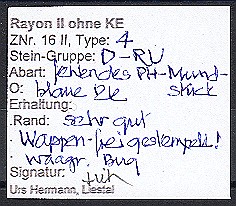 Rayon II ohne KE
ZNr. 16 II, Type: 4
Stein-Gruppe: D-RU
Abart: fehlendes PH-Mund-
O: blaue DE stück
Erhaltung:
.Rand: sehr gut
. Wappen-frei gestempelt!
. waagr. Bug
Signatur:
Urs Hermann, Liestal